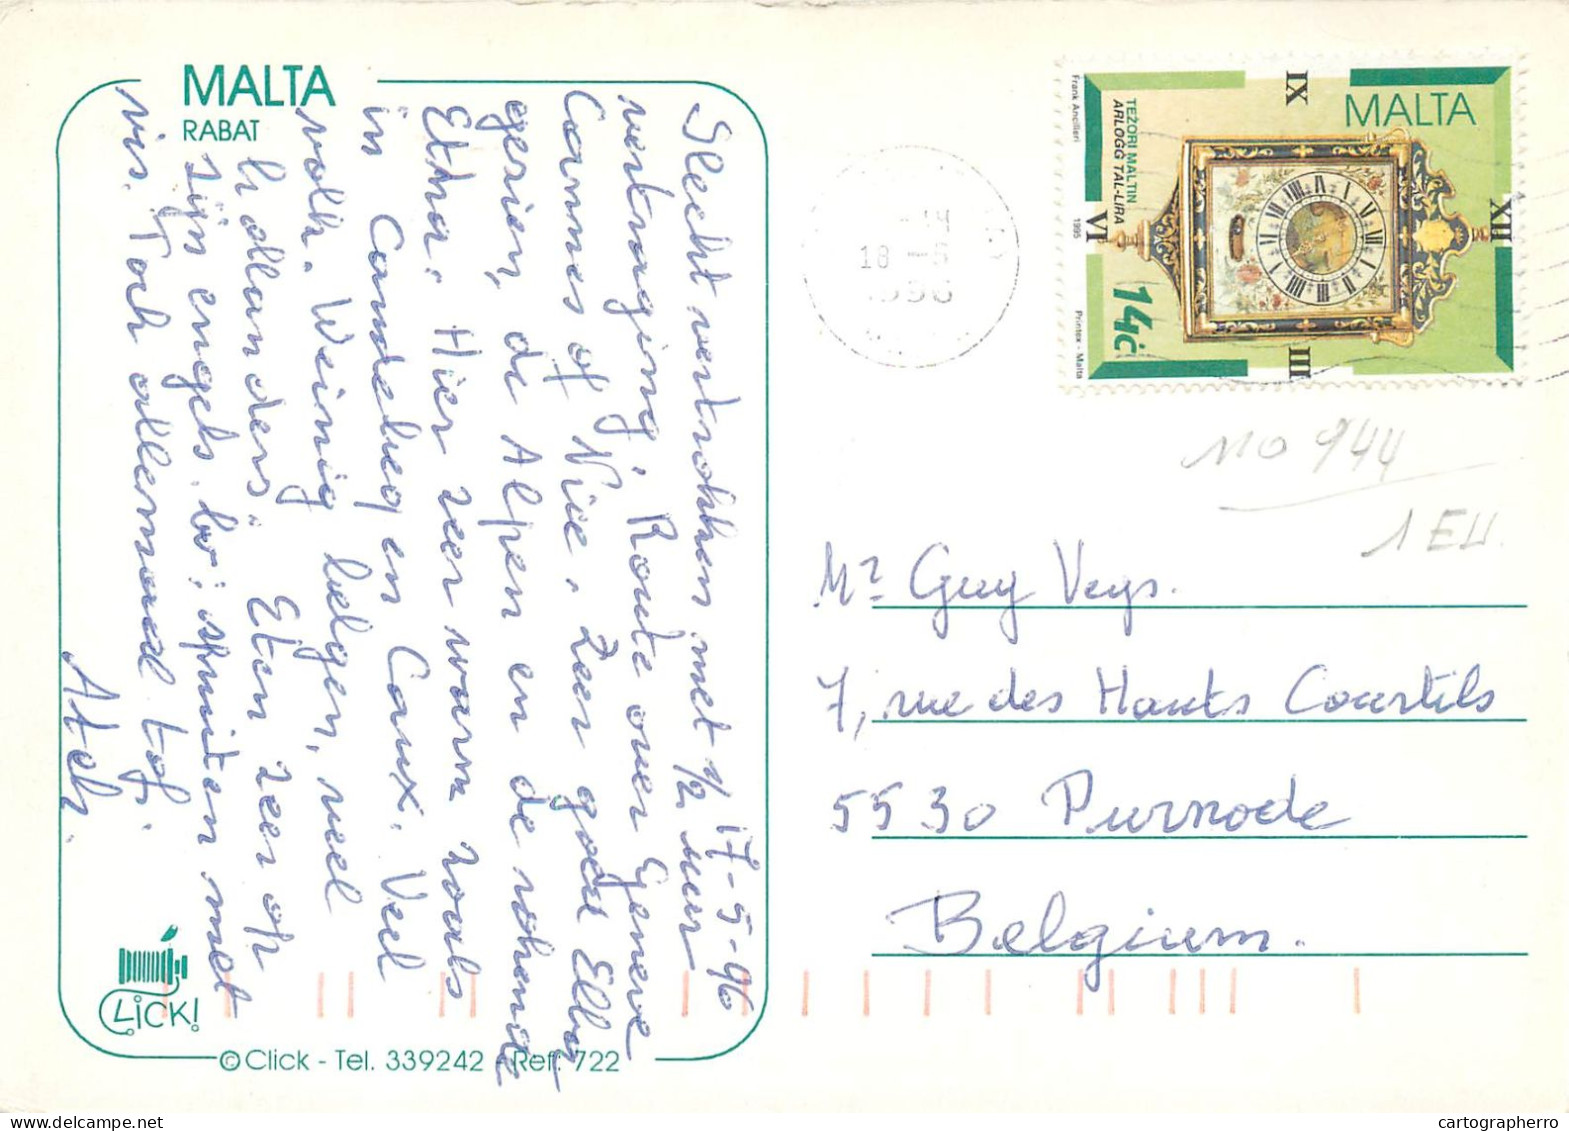 MALTA
RABAT
17-5-96
Slecht vertrokken met 1/2 uur
vertraging. Route over Geneve
Cannes of Nice. Zeer goed Elba
gezien, de Alpen en de rokende
Etna. Hier zeer warm zoals
in Caudebec en Caux. Veel
volk. Weinig belgen, veel
hollanders. Eten zeer op
zijn engels. bv: spruiten met
vis. Toch allemaal tof.
MALTA
TEŻORI MALTIN
ARLOGG TAL-LIRA
14ċ
Frank Ancilleri
1995
Printex - Malta
IX
XII
VI
III
18
110 944
1 EU
Mr Guy Veys.
7, rue des Hauts Courtils
5530 Purnode
Belgium.
CLICK!
© Click - Tel. 339242 - Ref: 722
cartographerro